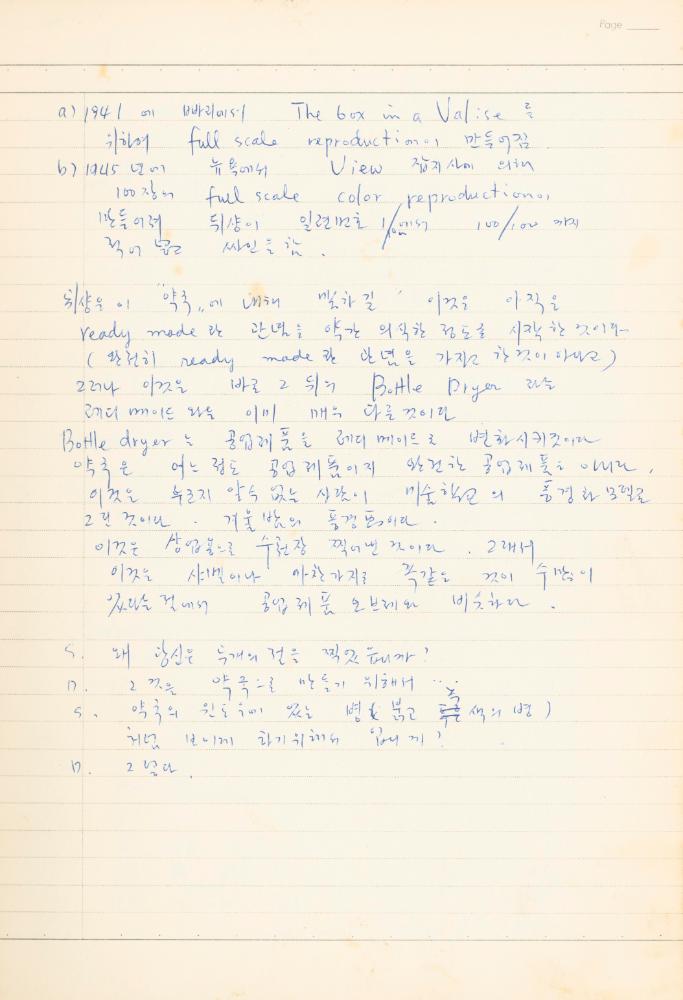 Page
a) 1941 에 빠리에서 The box in a Valise 를
위하여 full scale reproduction이 만들어짐
b) 1945 년에 뉴욕에서 View 잡지사에 의해
100장의 full scale color reproduction이
만들어져 뒤샹이 일련번호 1/100에서 100/100 까지
적어 넣고 싸인을 함.
뒤샹은 이 "약국"에 대해 말하길 ' 이것은 아직은
ready made 란 관념을 약간 의식한 정도로 시작한 것이다
( 완전히 ready made 란 관념을 가지고 한것이 아니고)
그러나 이것은 바로 그 뒤의 Bottle Dryer 라는
레디메이드 와는 이미 매우 다른 것이다
Bottle dryer 는 공업제품을 레디메이드로 변화시키것이다
약국은 어느 정도 공업제품이지 완전한 공업제품은 아니다.
이것은 누군지 알수 없는 사람이 미술학교의 풍경화 모델로
그린 것이다. 겨울 밤의 풍경이다.
이것은 상업용으로 수천장 찍어낸 것이다. 그래서
이것은 샤벨이나 마찬가지로 똑같은 것이 수만이
있다는 점에서 공업제품 오브제와 비슷하다.
S. 왜 당신은 두개의 점을 찍었읍니까?
D. 그것은 약국으로 만들기 위해서 ...
S. 약국의 윈도우에 있는 병( 붉고 푸른 색의 병)
처럼 보이게 하기위해서 입니까?
D. 그렇다.